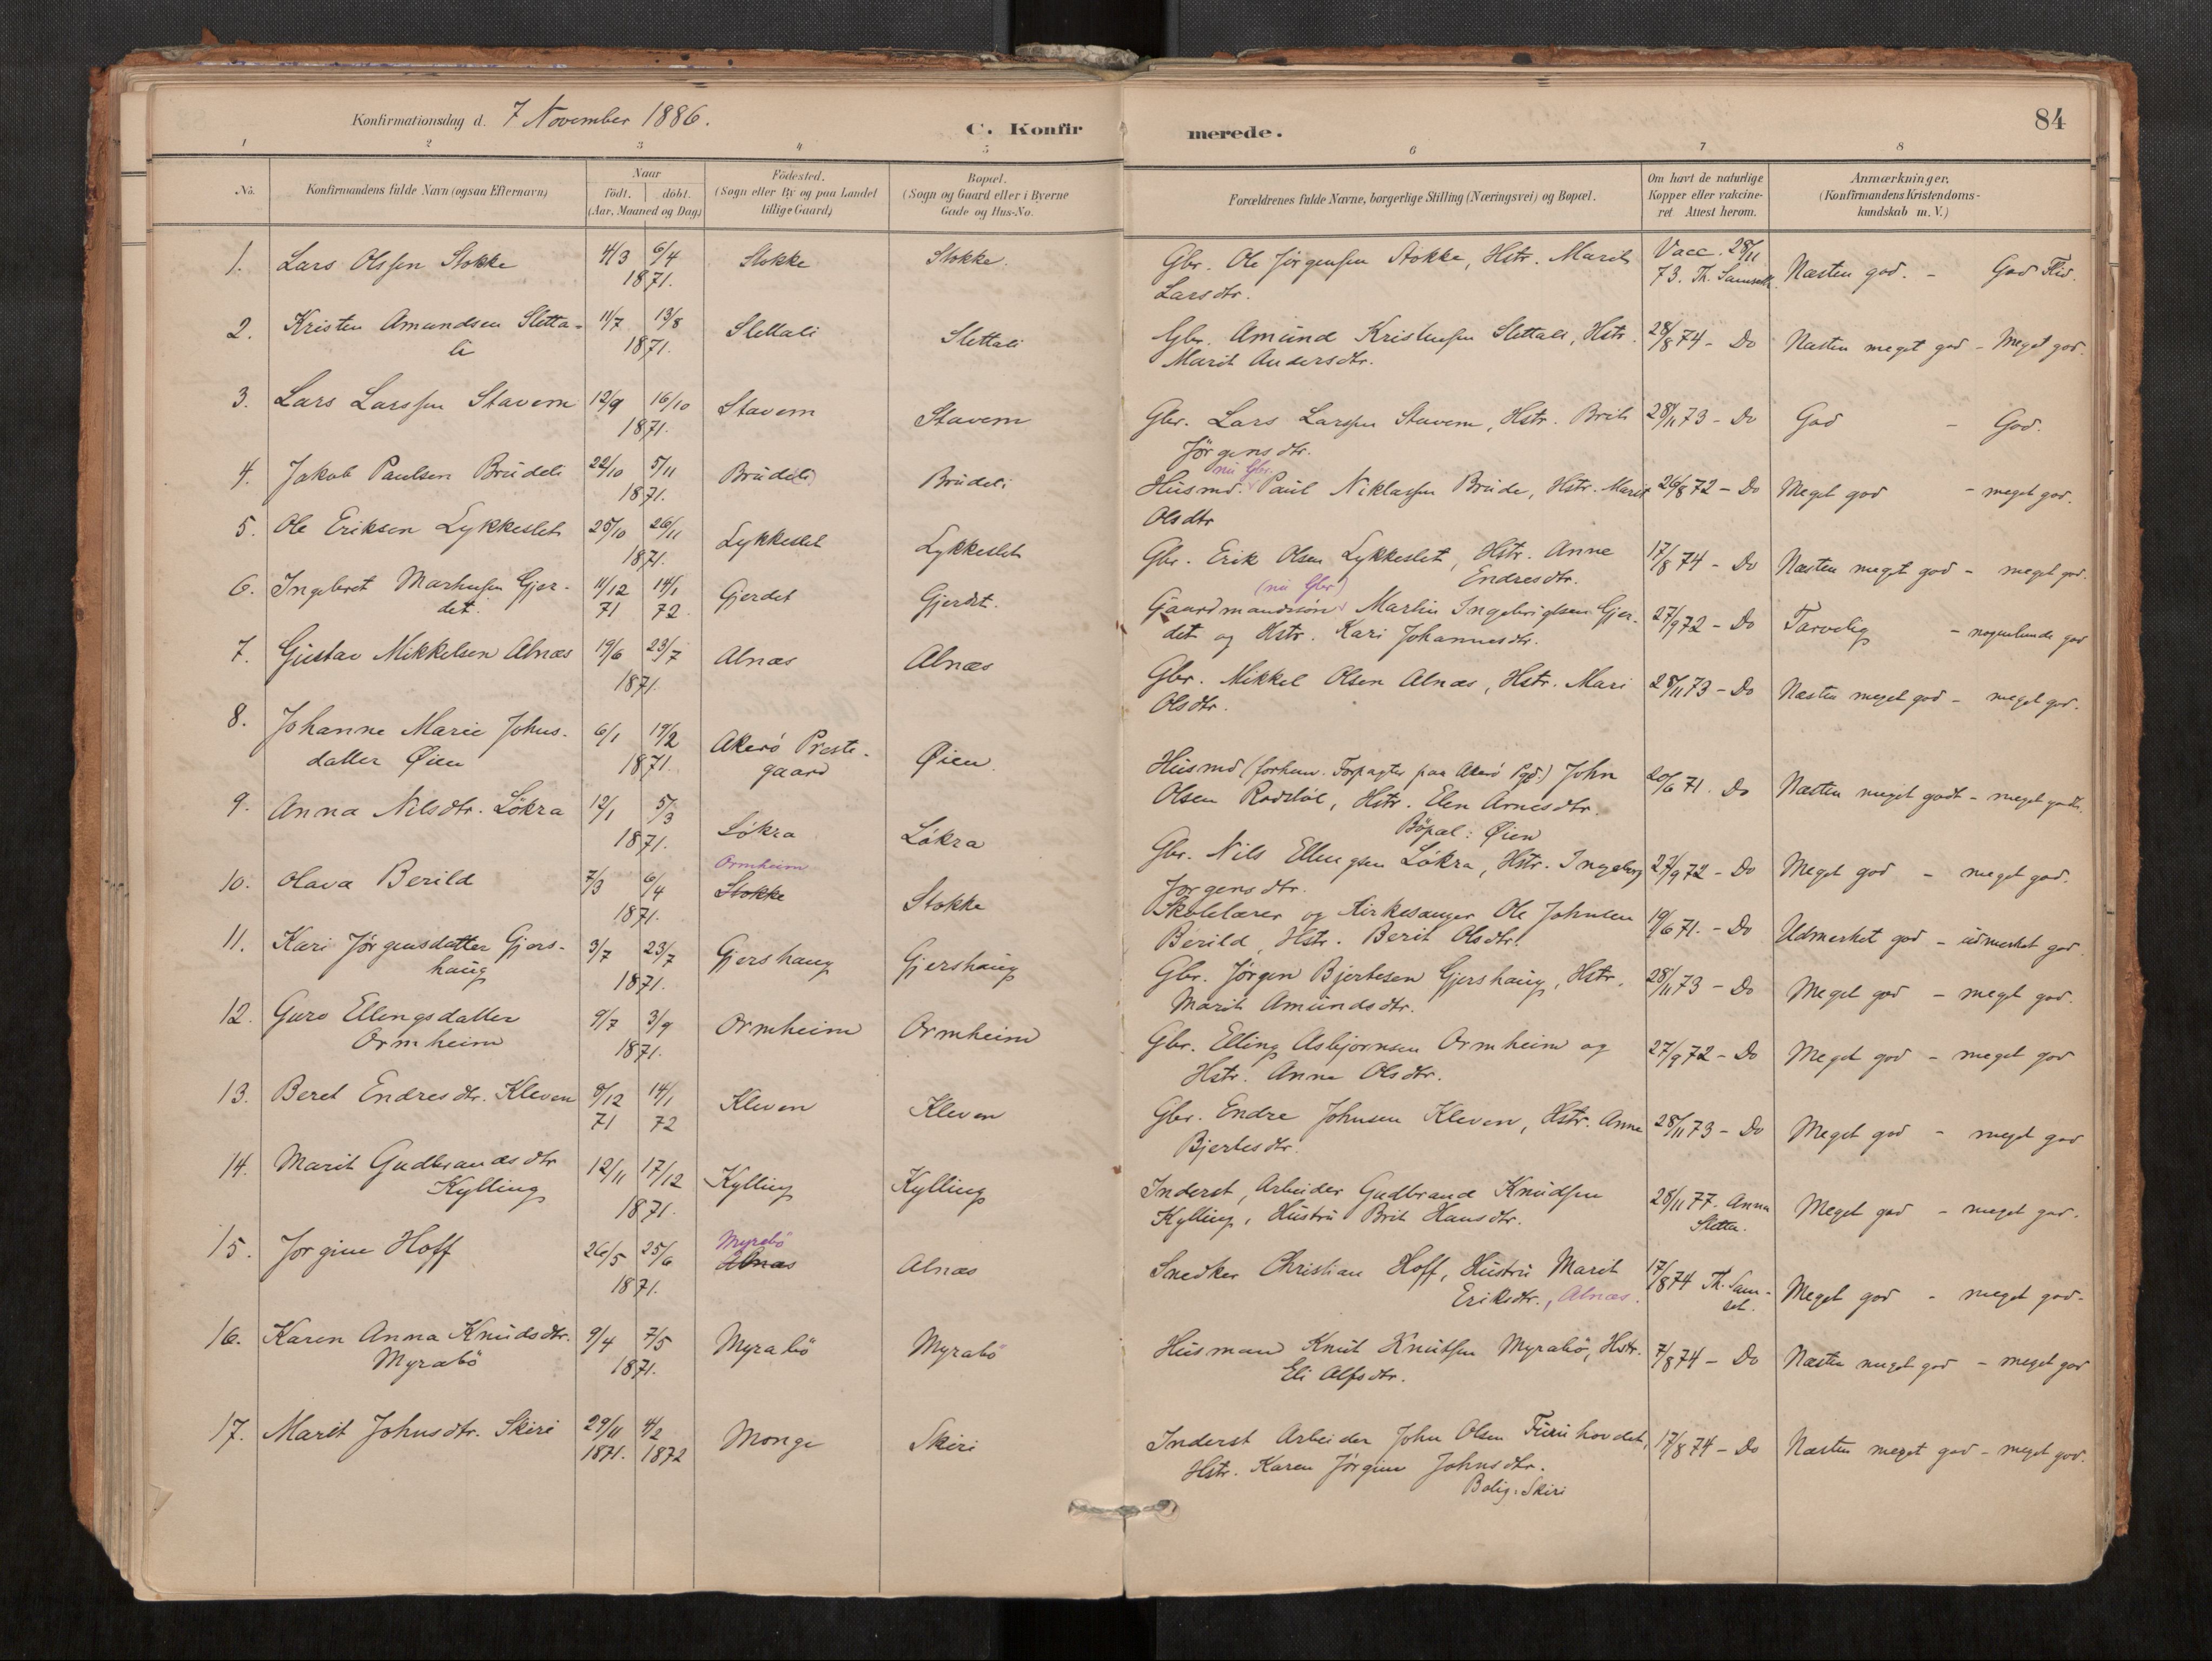 Konfirmationsdag d. 7 November 1886.
C. Konfirmerede.
84
1 2 3 4 5 6 7 8
No.
Konfirmandens fulde Navn (ogsaa Efternavn)
Naar
födt. döbt.
(Aar, Maaned og Dag)
Födested.
(Sogn eller By og paa Landet
tillige Gaard)
Bopæl.
(Sogn og Gaard eller i Byerne
Gade og Hus-No.
Forældrenes fulde Navne, borgerlige Stilling (Næringsvei) og Bopæl.
Om havt de naturlige
Kopper eller vakcine-
ret Attest herom.
Anmærkninger,
(Konfirmandens Kristendoms-
kundskab m. V.)
1. Lars Olssen Stokke 4/3 6/4 Stokke Stokke. Gbr. Ole Jørgensen Stokke, Hstr. Marit Vacc. 28/11
1871. Larsdtr. 73. Th. Samset. Næsten god. - God Flid.
2. Kristen Amundsen Sletta- 11/7 13/8 Slettali Slettali Gbr. Amund Kristensen Slettali, Hstr. 28/8 74 - Do Næsten meget god - Meget god.
li 1871. Marit Andersdtr.
3. Lars Larssen Stavem 12/9 16/10 Stavem Stavem Gbr. Lars Larssen Stavem, Hstr. Brit 28/11 73 - Do God - God.
1871. Jörgensdtr.
nu Gbr.
4. Jakob Paulsen Brudeli 22/10 5/11 Brudeli Brudeli Husmd. Paul Niklassen Brude, Hstr. Marit 26/8 72 - Do Meget god - meget god.
1871. Olsdtr
5. Ole Eriksen Lykkeslet 25/10 26/11 Lykkeslet Lykkeslet Gbr. Erik Olsen Lykkeslet, Hstr. Anne 17/8 74 - Do Næsten meget god - meget god.
1871. Endresdtr.
(nu Gbr)
6. Ingebret Marhusen Gjer- 11/12 14/1 Gjerdet Gjerdet. Gaardmandssön Martin Ingebrigtsen Gjer- 27/9 72 - Do Tarvelig - nogenlunde god
det. 71 72 det og Hstr. Kari Johannesdtr.
7. Gustav Mikkelsen Alnæs 19/6 23/7 Alnæs Alnæs Gbr. Mikkel Olsen Alnæs, Hstr. Mari 28/11 73 - Do Næsten meget god - meget god.
1871. Olsdtr.
8. Johanne Marie Johns- 6/1 19/2 Akerö Preste- Øien. Husmd (forhen. Forpagter paa Akerö Pgd.) John 20/6 71. Do Næsten meget godt - meget godt.
datter Øien 1871. gaard Olsen Rödstöl, Hstr. Elen Arnesdtr.
Bopæl: Øien
9. Anna Nilsdtr. Lökra 12/1 5/3 Lökra Lökra Gbr. Nils Ellingsen Lökra, Hstr. Ingeborg 27/9 72 - Do Meget god - meget god.
1871. Jörgensdtr.
Ormheim
10. Olava Berild 7/3 6/4 Stokke Stokke Skolelærer og Kirkesanger Ole Johnsen 19/6 71. - Do Udmerket god - udmerket god.
1871. Berild, Hstr. Berit Olsdtr.
11. Kari Jørgensdatter Gjers- 3/7 23/7 Gjershaug Gjershaug Gbr. Jörgen Bjertesen Gjershaug, Hstr. 28/11 73 - Do Meget god - meget god.
haug 1871. Marit Amundsdtr.
12. Guro Ellingsdatter 9/7 3/9 Ormheim Ormheim Gbr. Elling Asbjørnsen Ormheim og 27/9 72 - Do Meget god - meget god
Ormheim 1871. Hstr. Anne Olsdtr.
13. Beret Endresdtr. Kleven 9/12 14/1 Kleven Kleven Gbr. Endre Johnsen Kleven, Hstr. Anne 28/11 73 - Do Meget god - meget god
71 72 Bjertesdtr.
14. Marit Gudbrandsdtr 12/11 17/12 Kylling Kylling Inderst, Arbeider Gudbrand Knudsen 28/11 77. Anna Meget god - meget god.
Kylling 1871. Kylling, Hustru Brit Hansdtr. Sletta.
Myrabö
15. Jorgine Hoff 26/5 25/6 Alnæs Alnæs Snedker Christian Hoff, Hustru Marit 17/8 74 Th. Sam- Meget god - meget god.
1871. Eriksdtr., Alnæs. set.
16. Karen Anna Knudsdtr. 9/4 7/5 Myrabö Myrabö Husmand Knut Knutsen Myrabö, Hstr. 7/8 74 - Do Næsten meget god - meget god
Myrabö 1871. Eli Alfsdtr.
17. Marit Johnsdtr. Skiri 29/11 4/2 Monge Skiri Inderst Arbeider John Olsen Furuhovdet, 17/8 74 - Do Næsten meget god - meget god.
1871. 1872 Hstr. Karen Jørgine Johnsdtr.
Bolig: Skiri